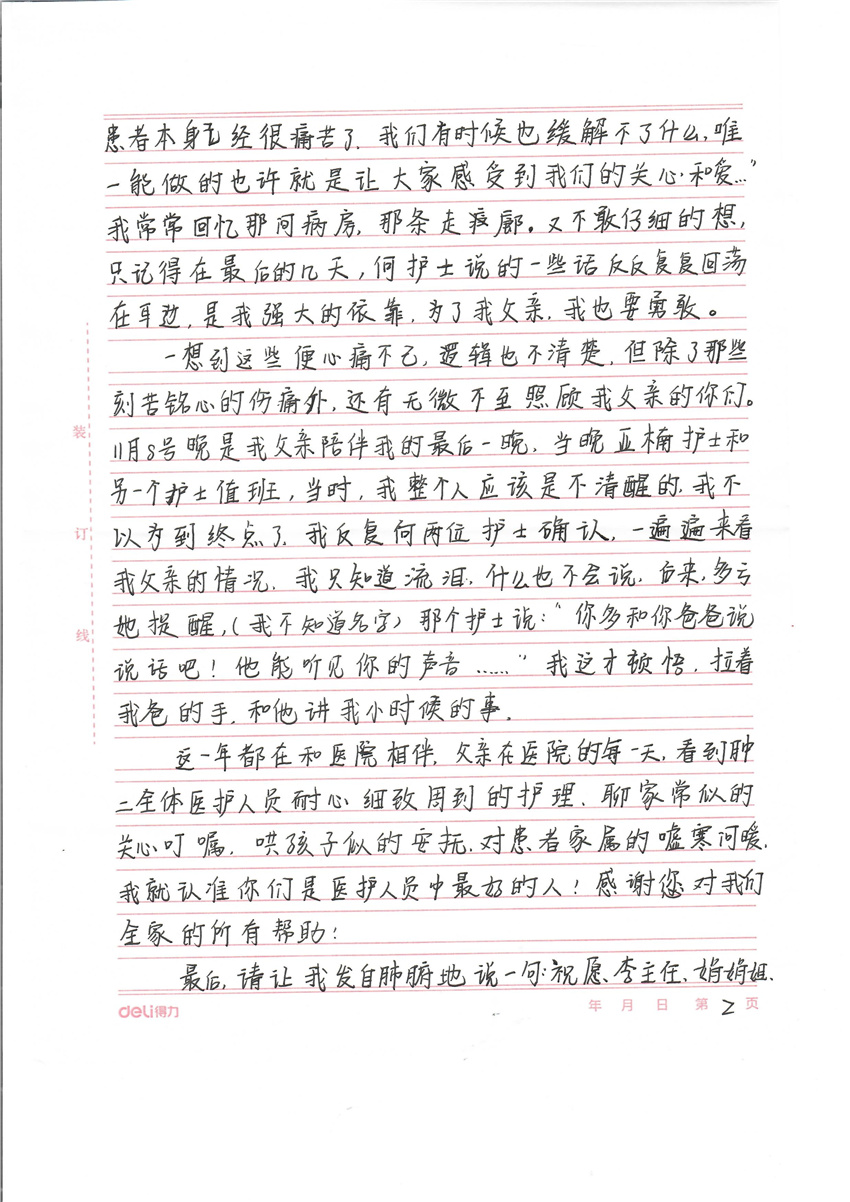 患者本身已经很痛苦了，我们有时候也缓解不了什么，唯
一能做的也许就是让大家感受到我们的关心和爱…”
我常常回忆那间病房，那条走廊。又不敢仔细的想，
只记得在最后的几天，何护士说的一些话反反复复回荡
在耳边，是我强大的依靠，为了我父亲，我也要勇敢。
一想到这些便心痛不已，逻辑也不清楚，但除了那些
刻苦铭心的伤痛外，还有无微不至照顾我父亲的你们。
11月8号晚是我父亲陪伴我的最后一晚，当晚亚楠护士和
另一个护士值班，当时，我整个人应该是不清醒的，我不
以为到终点了，我反复向两位护士确认，一遍遍来看
我父亲的情况，我只知道流泪，什么也不会说，后来，多亏
她提醒，（我不知道名字）那个护士说：“你多和你爸爸说
说话吧！他能听见你的声音……”我这才顿悟，拉着
我爸的手，和他讲我小时候的事，
这一年都在和医院相伴，父亲在医院的每一天，看到肿
二全体医护人员耐心细致周到的护理、聊家常似的
关心叮嘱，哄孩子似的安抚，对患者家属的嘘寒问暖，
我就认准你们是医护人员中最好的人！感谢您对我们
全家的所有帮助！
最后，请让我发自肺腑地说一句：祝愿，李主任、娟娟姐、
装
订
线
deli得力
年 月 日 第 2 页